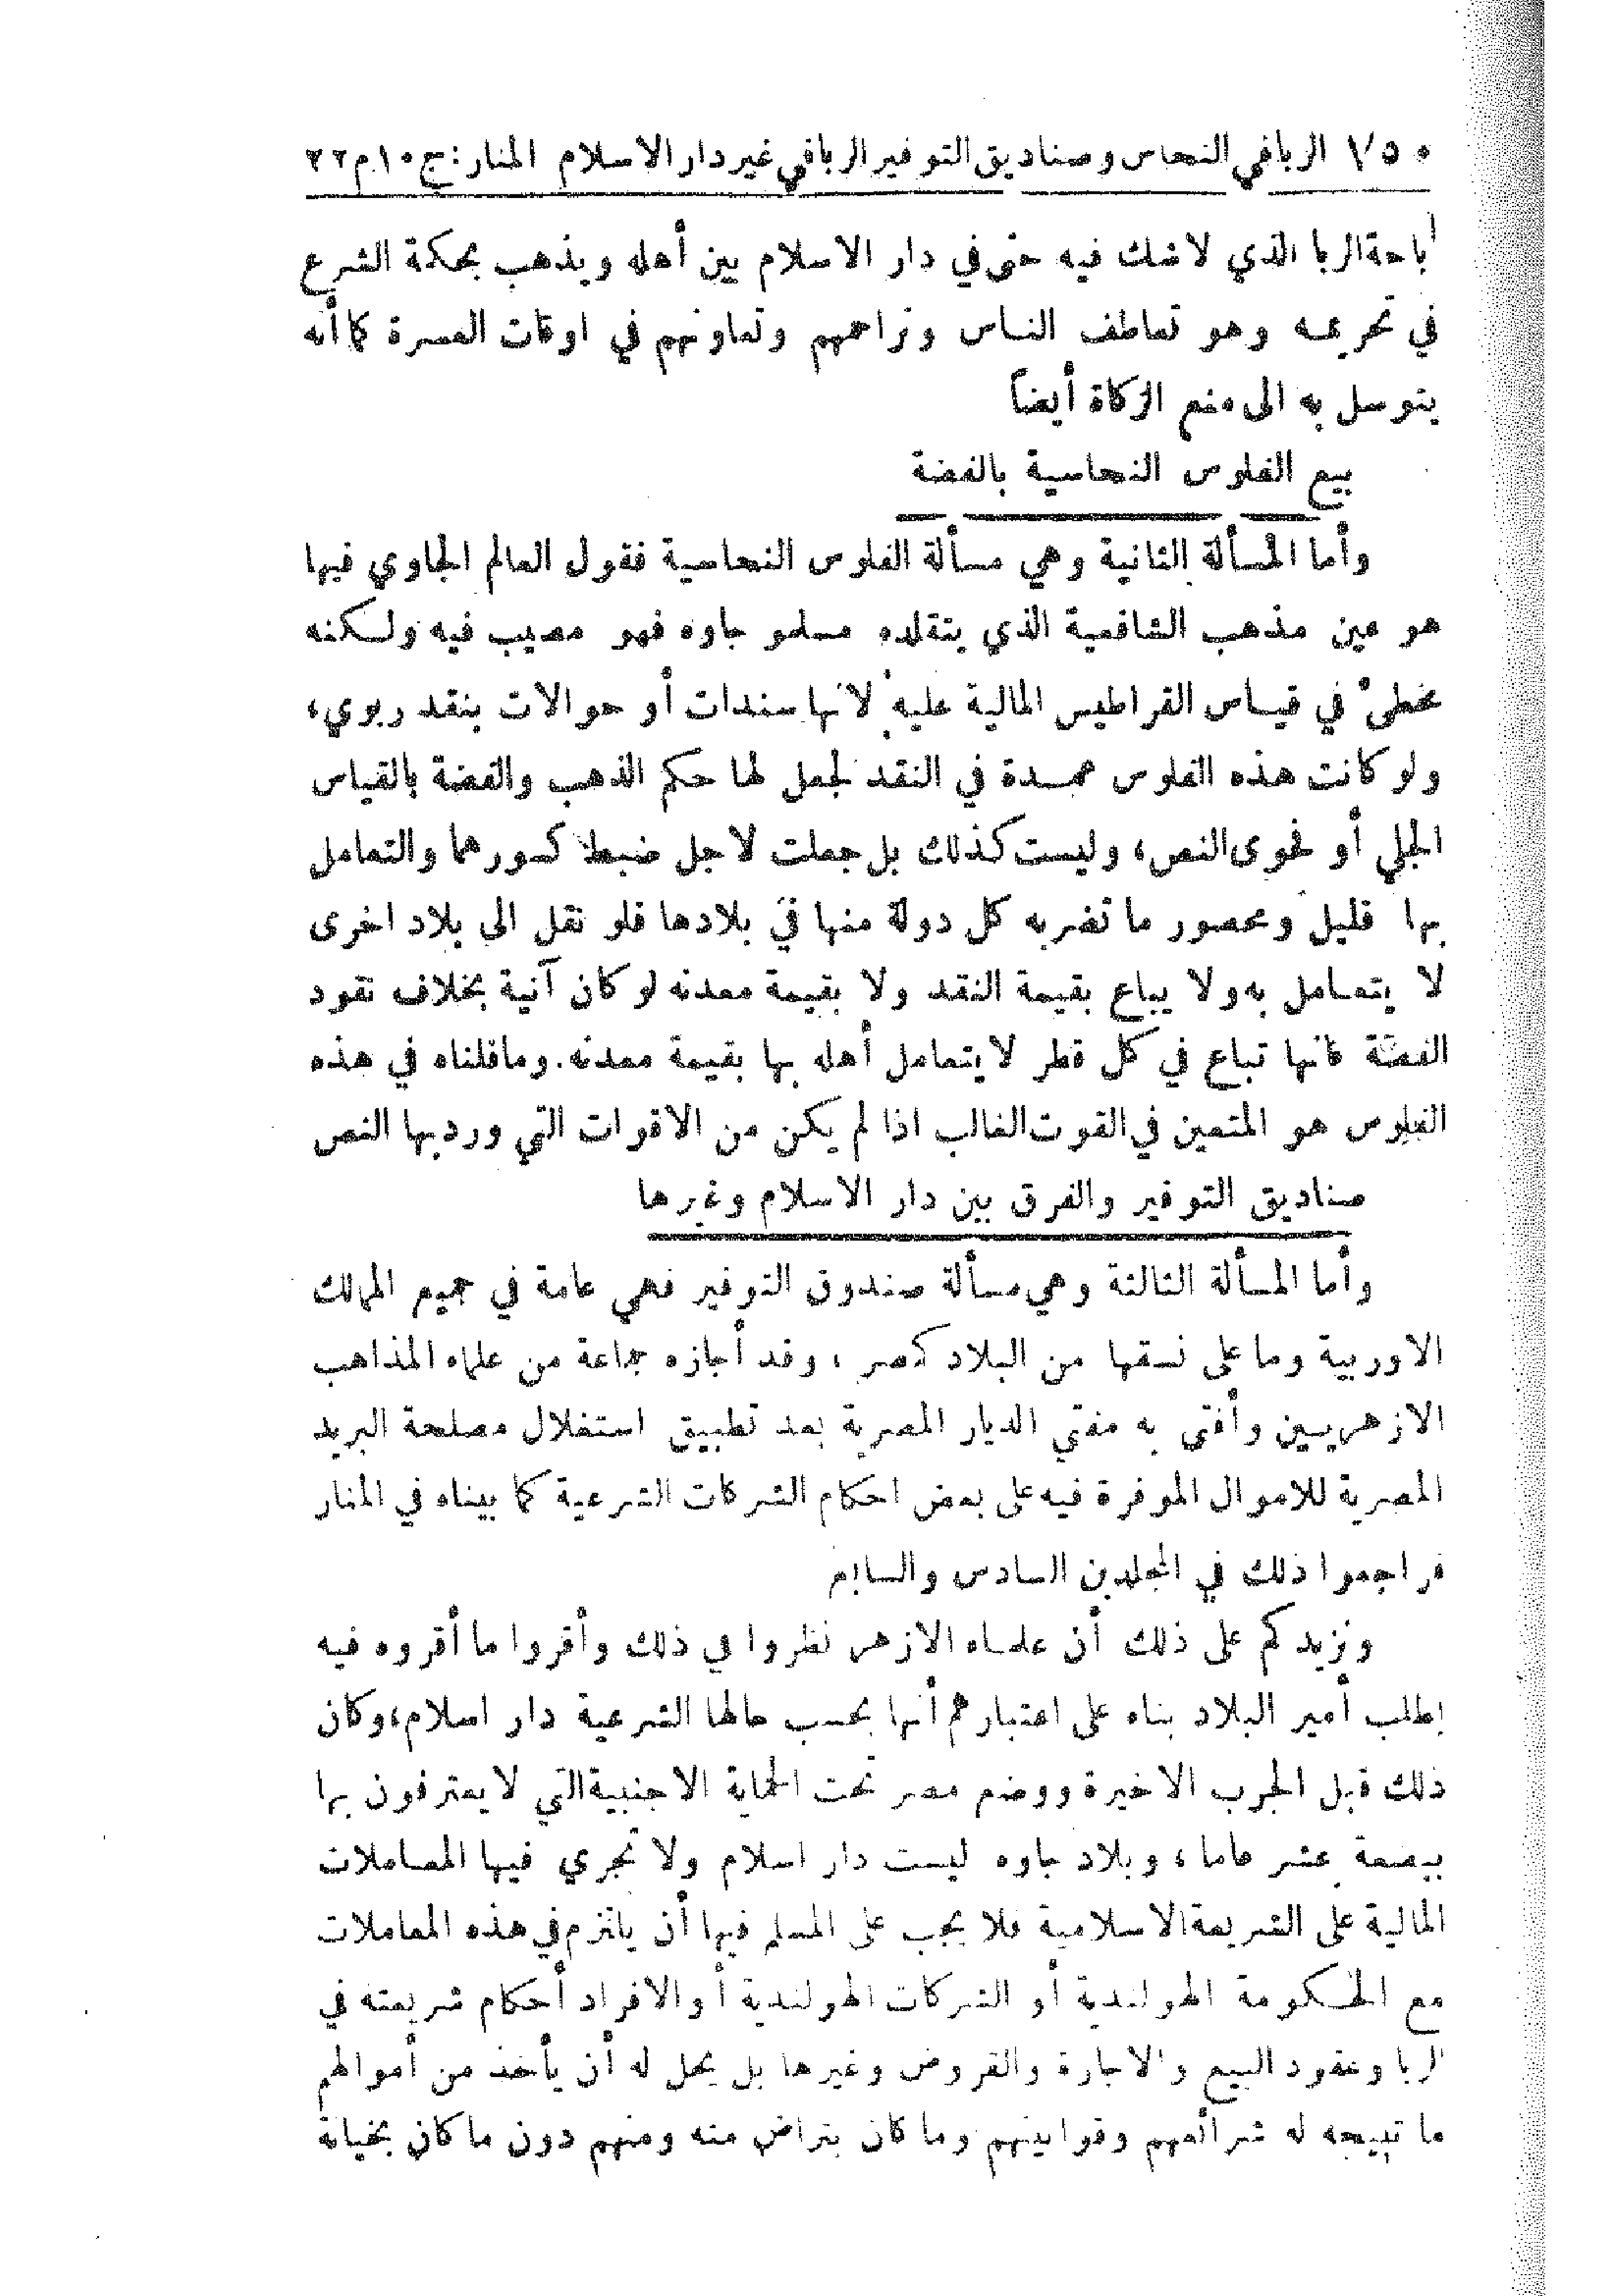 ٧٥٠ الربا في النحاس وصناديق التوفير الربا في غير دار الاسلام المنار: ج ١٠ م ٢٢
اباحة الربا الذي لا شك فيه حتى في دار الاسلام بين أهله ويذهب بحكمة الشرع
في تحريمه وهو تعاطف الناس وتراحمهم وتعاونهم في اوقات العسرة كما أنه
يتوسل به الى منع الزكاة أيضاً
بيع الفلوس النحاسية بالفضة
وأما المسألة الثانية وهي مسألة الفلوس النحاسية فقول العالم الجاوي فيها
هو عين مذهب الشافعية الذي يتقلده مسلمو جاوه فهو مصيب فيه ولكنه
مخطئ في قياس القراطيس المالية عليه لانها سندات أو حوالات بنقد ربوي،
ولو كانت هذه الفلوس عمدة في النقد لجعل لها حكم الذهب والفضة بالقياس
الجلي أو فحوى النص، وليست كذلك بل جعلت لاجل ضبط كسورهما والتعامل
بها قليل ومحصور ما تضربه كل دولة منها في بلادها فلو نقل الى بلاد اخرى
لا يتعامل به ولا يباع بقيمة النقد ولا بقيمة معدنه لو كان آنية بخلاف نقود
الفضة فانها تباع في كل قطر لا يتعامل أهله بها بقيمة معدنه. وما قلناه في هذه
الفلوس هو المتعين في القوت الغالب اذا لم يكن من الاقوات التي ورد بها النص
صناديق التوفير والفرق بين دار الاسلام وغيرها
وأما المسألة الثالثة وهي مسألة صندوق التوفير فهي عامة في جميع الممالك
الاوربية وما على نسقها من البلاد كمصر، وقد أجازه جماعة من علماء المذاهب
الازهريين وأفتى به مفتي الديار المصرية بعد تطبيق استغلال مصلحة البريد
المصرية للاموال الموفرة فيه على بعض احكام الشركات الشرعية كما بيناه في المنار
فراجعوا ذلك في المجلدين السادس والسابع
ونزيدكم على ذلك أن علماء الازهر نظروا في ذلك وأقروا ما أقروه فيه
بطلب أمير البلاد بناء على اعتبارهم أنها بحسب حالها الشرعية دار اسلام، وكان
ذلك قبل الحرب الاخيرة ووضع مصر تحت الحماية الاجنبية التي لا يعترفون بها
ببضعة عشر عاما، وبلاد جاوه ليست دار اسلام ولا تجري فيها المعاملات
المالية على الشريعة الاسلامية فلا يجب على المسلم فيها أن يلتزم في هذه المعاملات
مع الحكومة الهولندية أو الشركات الهولندية أو الافراد أحكام شريعته في
الربا وعقود البيع والاجارة والقروض وغيرها بل يحل له أن يأخذ من أموالهم
ما تبيحه له شرائعهم وقوانينهم وما كان بتراض منه ومنهم دون ما كان بخيانة